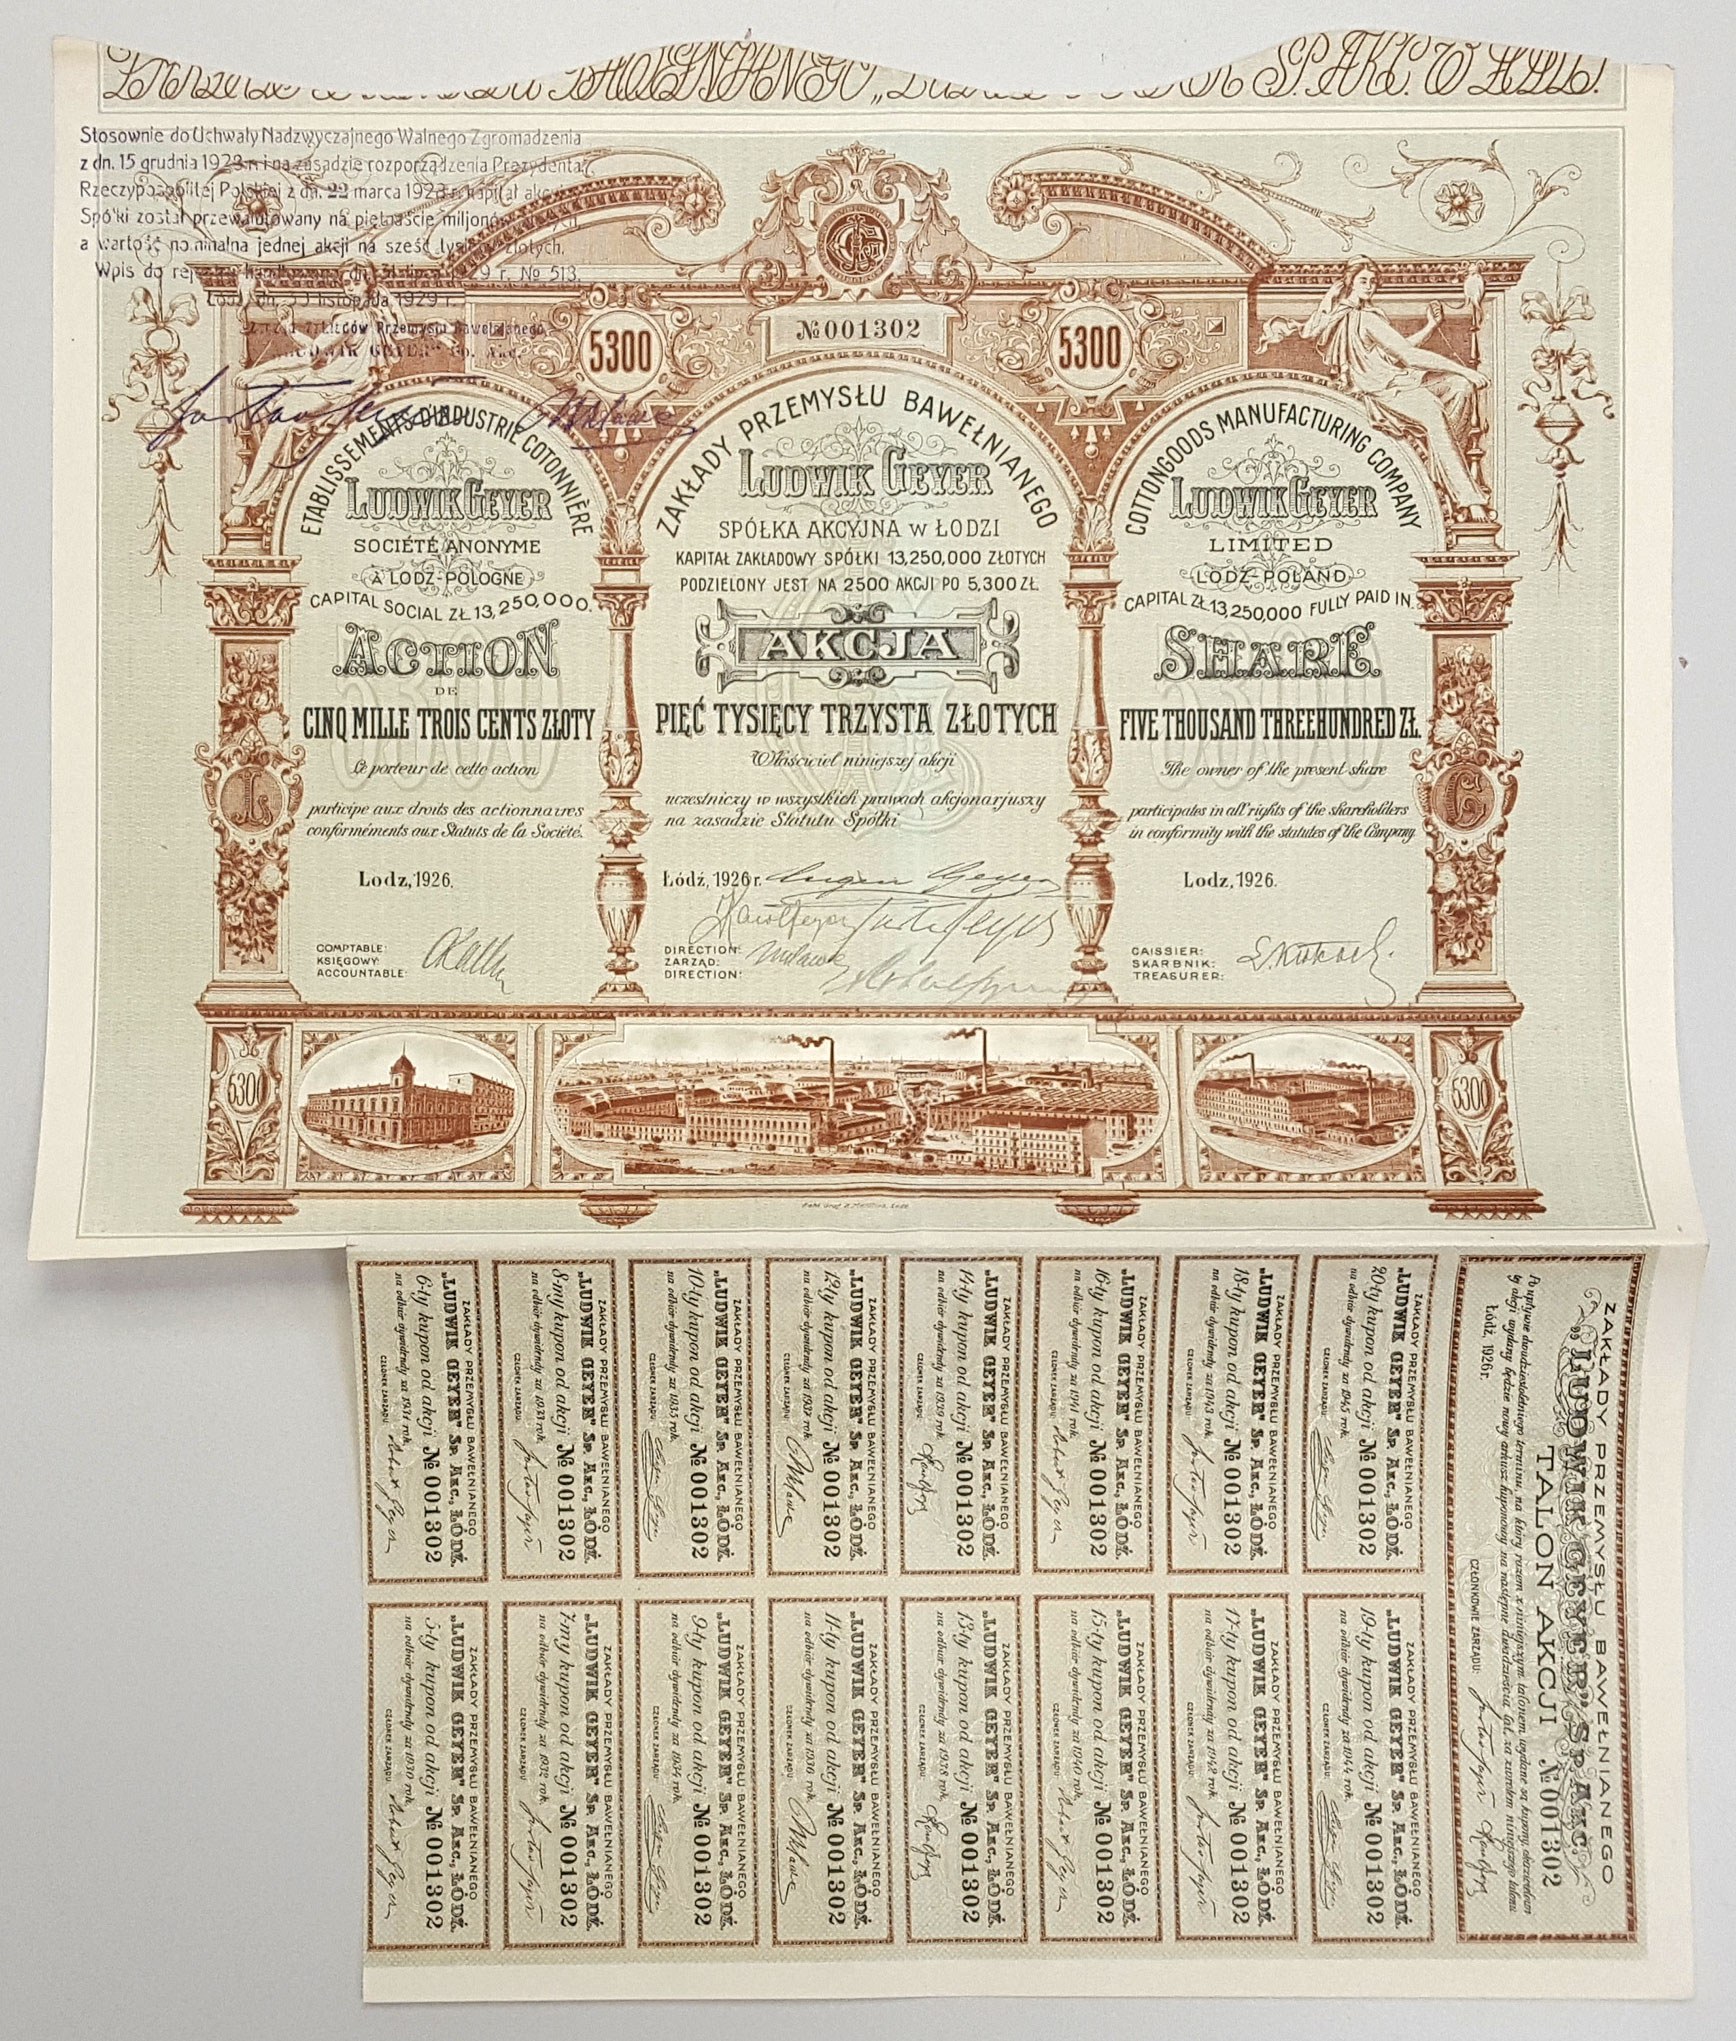 SP. AKC. W
Stosownie do Uchwały Nadzwyczajnego Walnego Zgromadzenia
z dn. 15 grudnia 1928 r. i na zasadzie rozporządzenia Prezydenta
Rzeczypospolitej Polskiej z dn. 22 marca 1928 r. kapitał akcyjny
Spółki został przewalutowany na piętnaście miljonów złotych,
a wartość nominalna jednej akcji na sześć tysięcy złotych.
Wpis do rejestru handlowego dn. 1929 r. № 513.
Łódź, dn. listopada 1929 r.
Zakładów Przemysłu Bawełnianego
"LUDWIK GEYER" Sp. Akc.
5300
№ 001302
5300
ETABLISSEMENTS D'INDUSTRIE COTONNIÈRE
LUDWIK GEYER
SOCIÉTÉ ANONYME
À LODZ-POLOGNE
CAPITAL SOCIAL ZŁ 13,250,000.
ACTION
DE
CINQ MILLE TROIS CENTS ZŁOTY
Le porteur de cette action
participe aux droits des actionnaires
conforméments aux Statuts de la Société.
Lodz, 1926.
COMPTABLE:
KSIĘGOWY:
ACCOUNTABLE:
ZAKŁADY PRZEMYSŁU BAWEŁNIANEGO
LUDWIK GEYER
SPÓŁKA AKCYJNA w ŁODZI
KAPITAŁ ZAKŁADOWY SPÓŁKI 13,250,000 ZŁOTYCH
PODZIELONY JEST NA 2500 AKCJI PO 5,300 ZŁ.
AKCJA
PIĘĆ TYSIĘCY TRZYSTA ZŁOTYCH
Właściciel niniejszej akcji
uczestniczy w wszystkich prawach akcjonarjuszy
na zasadzie Statutu Spółki
Łódź, 1926 r.
DIRECTION:
ZARZĄD:
DIRECTION:
COTTONGOODS MANUFACTURING COMPANY
LUDWIK GEYER
LIMITED
LODZ-POLAND
CAPITAL ZŁ 13,250,000 FULLY PAID IN.
SHARE
FIVE THOUSAND THREEHUNDRED ZŁ.
The owner of the present share
participates in all rights of the shareholders
in conformity with the statutes of the Company.
Lodz, 1926.
CAISSIER:
SKARBNIK:
TREASURER:
L
G
5300
5300
ZAKŁADY PRZEMYSŁU BAWEŁNIANEGO
„LUDWIK GEYER" Sp. Akc., ŁÓDŹ.
6-ty kupon od akcji № 001302
na odbiór dywidendy za 1931 rok.
CZŁONEK ZARZĄDU:
ZAKŁADY PRZEMYSŁU BAWEŁNIANEGO
„LUDWIK GEYER" Sp. Akc., ŁÓDŹ.
8-my kupon od akcji № 001302
na odbiór dywidendy za 1933 rok.
CZŁONEK ZARZĄDU:
ZAKŁADY PRZEMYSŁU BAWEŁNIANEGO
„LUDWIK GEYER" Sp. Akc., ŁÓDŹ.
10-ty kupon od akcji № 001302
na odbiór dywidendy za 1935 rok.
CZŁONEK ZARZĄDU:
ZAKŁADY PRZEMYSŁU BAWEŁNIANEGO
„LUDWIK GEYER" Sp. Akc., ŁÓDŹ.
12-ty kupon od akcji № 001302
na odbiór dywidendy za 1937 rok.
CZŁONEK ZARZĄDU:
ZAKŁADY PRZEMYSŁU BAWEŁNIANEGO
„LUDWIK GEYER" Sp. Akc., ŁÓDŹ.
14-ty kupon od akcji № 001302
na odbiór dywidendy za 1939 rok.
CZŁONEK ZARZĄDU:
ZAKŁADY PRZEMYSŁU BAWEŁNIANEGO
„LUDWIK GEYER" Sp. Akc., ŁÓDŹ.
16-ty kupon od akcji № 001302
na odbiór dywidendy za 1941 rok.
CZŁONEK ZARZĄDU:
ZAKŁADY PRZEMYSŁU BAWEŁNIANEGO
„LUDWIK GEYER" Sp. Akc., ŁÓDŹ.
18-ty kupon od akcji № 001302
na odbiór dywidendy za 1943 rok.
CZŁONEK ZARZĄDU:
ZAKŁADY PRZEMYSŁU BAWEŁNIANEGO
„LUDWIK GEYER" Sp. Akc., ŁÓDŹ.
20-ty kupon od akcji № 001302
na odbiór dywidendy za 1945 rok.
CZŁONEK ZARZĄDU:
ZAKŁADY PRZEMYSŁU BAWEŁNIANEGO
„LUDWIK GEYER" Sp. Akc., ŁÓDŹ.
5-ty kupon od akcji № 001302
na odbiór dywidendy za 1930 rok.
CZŁONEK ZARZĄDU:
ZAKŁADY PRZEMYSŁU BAWEŁNIANEGO
„LUDWIK GEYER" Sp. Akc., ŁÓDŹ.
7-my kupon od akcji № 001302
na odbiór dywidendy za 1932 rok.
CZŁONEK ZARZĄDU:
ZAKŁADY PRZEMYSŁU BAWEŁNIANEGO
„LUDWIK GEYER" Sp. Akc., ŁÓDŹ.
9-ty kupon od akcji № 001302
na odbiór dywidendy za 1934 rok.
CZŁONEK ZARZĄDU:
ZAKŁADY PRZEMYSŁU BAWEŁNIANEGO
„LUDWIK GEYER" Sp. Akc., ŁÓDŹ.
11-ty kupon od akcji № 001302
na odbiór dywidendy za 1936 rok.
CZŁONEK ZARZĄDU:
ZAKŁADY PRZEMYSŁU BAWEŁNIANEGO
„LUDWIK GEYER" Sp. Akc., ŁÓDŹ.
13-ty kupon od akcji № 001302
na odbiór dywidendy za 1938 rok.
CZŁONEK ZARZĄDU:
ZAKŁADY PRZEMYSŁU BAWEŁNIANEGO
„LUDWIK GEYER" Sp. Akc., ŁÓDŹ.
15-ty kupon od akcji № 001302
na odbiór dywidendy za 1940 rok.
CZŁONEK ZARZĄDU:
ZAKŁADY PRZEMYSŁU BAWEŁNIANEGO
„LUDWIK GEYER" Sp. Akc., ŁÓDŹ.
17-ty kupon od akcji № 001302
na odbiór dywidendy za 1942 rok.
CZŁONEK ZARZĄDU:
ZAKŁADY PRZEMYSŁU BAWEŁNIANEGO
„LUDWIK GEYER" Sp. Akc., ŁÓDŹ.
19-ty kupon od akcji № 001302
na odbiór dywidendy za 1944 rok.
CZŁONEK ZARZĄDU:
ZAKŁADY PRZEMYSŁU BAWEŁNIANEGO
„LUDWIK GEYER" SP. AKC.
TALON AKCJI № 001302
Po upływie dwudziestoletniego terminu, na który razem z niniejszym talonem wydane są kupony, okazicielowi
tej akcji wydany będzie nowy arkusz kuponowy na następne dwadzieścia lat, za zwrotem niniejszego talonu
Łódź, 1926 r.
CZŁONKOWIE ZARZĄDU: